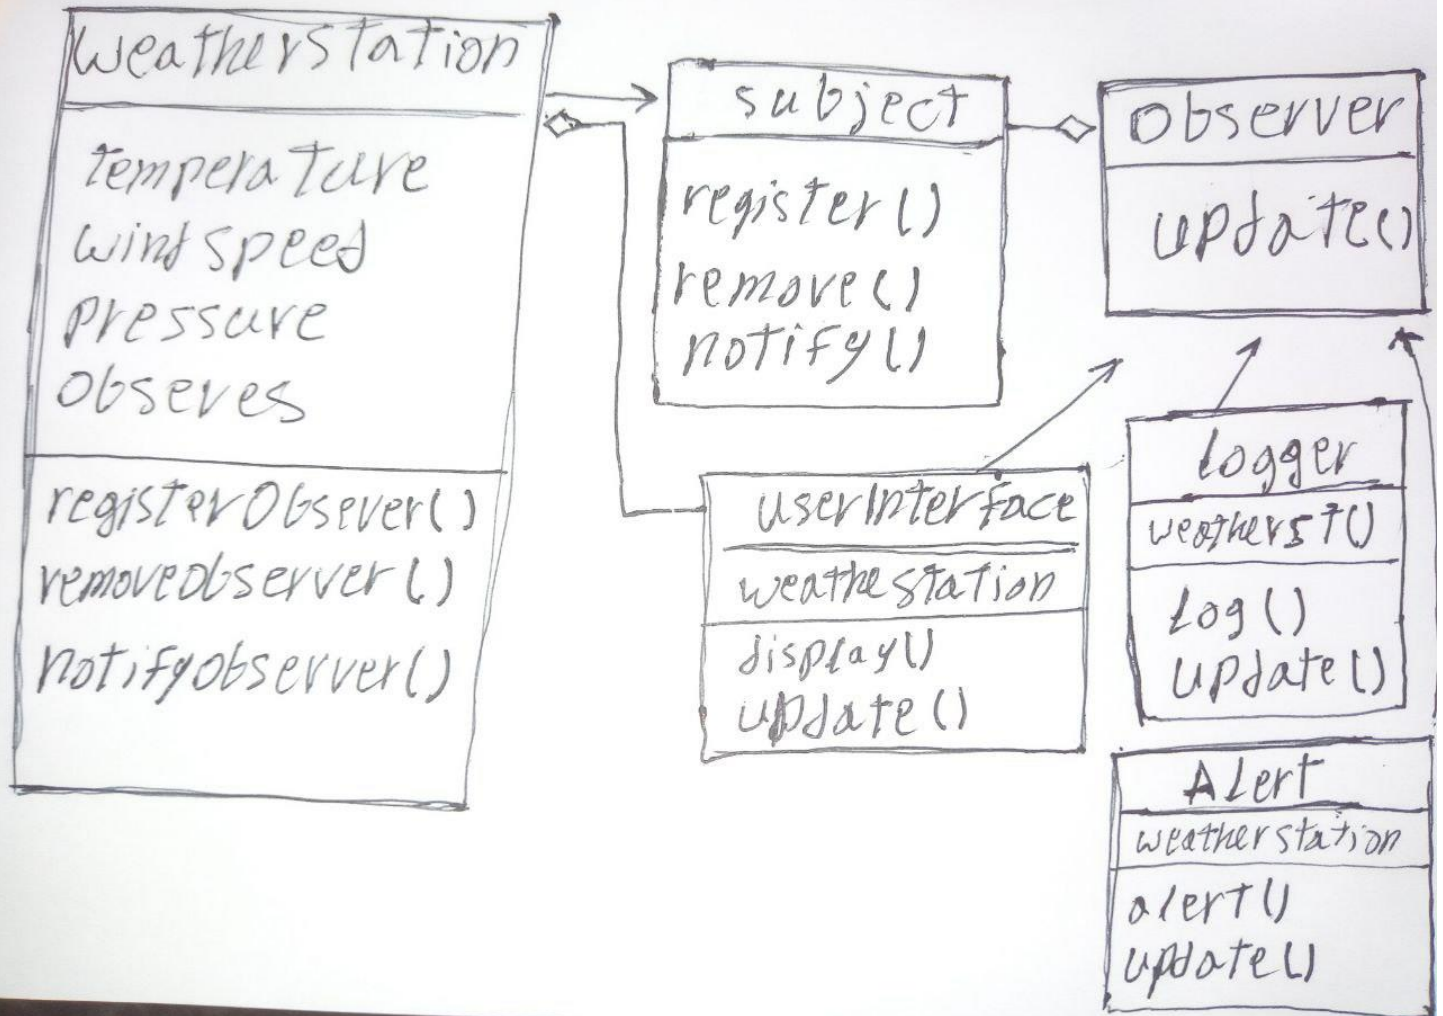 weatherstation
temperature
windspeed
pressure
Observes
registerObsever()
removeobserver()
notifyobserver()
subject
register()
remove()
notify()
observer
update()
userInterface
weathestation
display()
update()
logger
weatherst()
log()
update()
Alert
weatherstation
alert()
update()